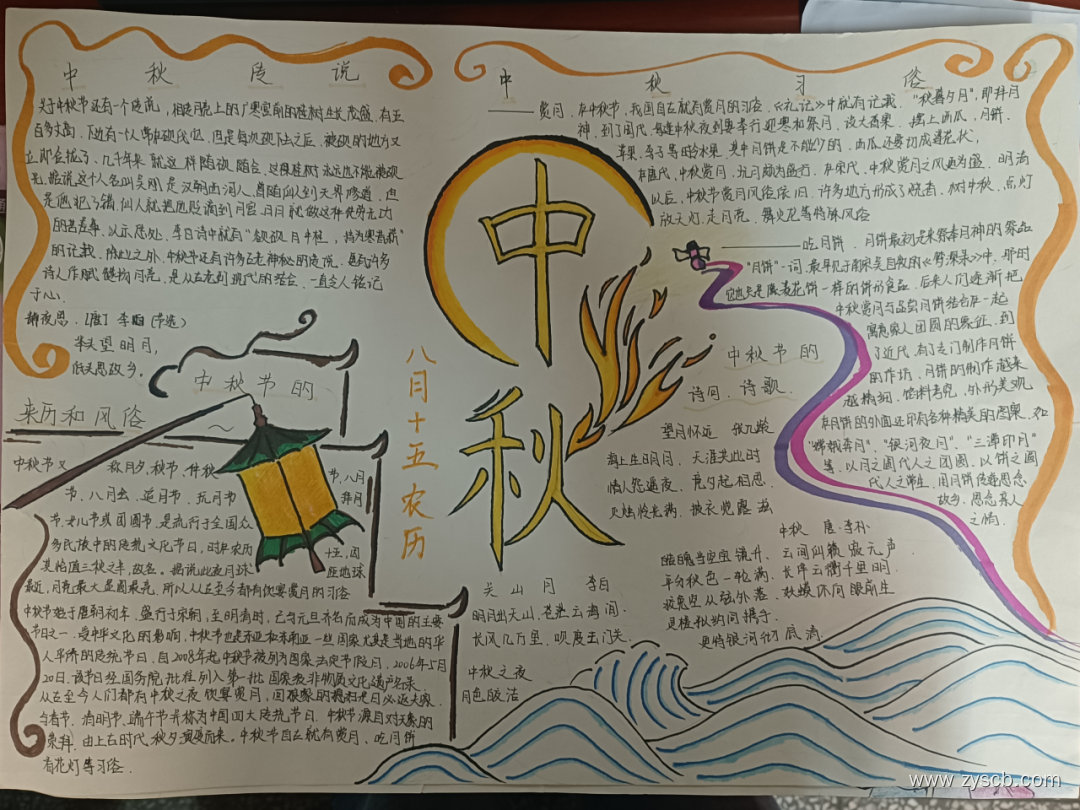 中秋传说
关于中秋节还有一个传说，相传月亮上的广寒宫前的桂树生长茂盛，有五
百多丈高，下边有一个人常在砍伐它，但是每次砍下去之后，被砍的地方又
立即合拢了，几千年来，就这样随砍随合，这棵桂树永远也不能被砍
光。据说这个人名叫吴刚，是汉朝西河人，曾随仙人到天界修道，但
是他犯了错，仙人就把他贬谪到月宫，日日就做这种徒劳无功
的苦差事，以示惩处，李白诗中就有“欲斫月中桂，持为寒者薪”
的记载，除此之外，中秋节还有许多古老神秘的传说，更有许多
诗人作赋
于心，
静夜思·[唐] 李白(节选)
举头望明月，
低头思故乡。
中秋节的
来历和风俗
中秋节又称月夕、秋节、仲秋
节、八月节、八月会、追月节、玩月节、拜月
节、女儿节或团圆节，是流行于全国众
多民族中的传统文化节日，时在农历八月十五，因
其恰值三秋之半，故名。据说此夜月球距地球
最近，月亮最大最圆最亮，所以从古至今都有饮宴赏月的习俗
中秋节始于唐朝初年，盛行于宋朝，至明清时，已与元旦齐名而成为中国的主要
节日之一，受中华文化的影响，中秋节也是东亚和东南亚一些国家尤其是当地的华
人华侨的传统节日，自2008年起中秋节被列为国家法定节假日，2006年5月
20日，该节日经国务院批准列入第一批国家级非物质文化遗产名录
从古至今人们都有中秋之夜饮宴赏月
与春节、清明节、端午节并称为中国四大传统节日，中秋节源自对天象的
崇拜，由上古时代秋夕演变而来。中秋节自古就有赏月、吃月饼
看花灯等习俗．
八月十五农历
中秋
中秋习俗
——赏月，在中秋节，我国自古就有赏月的习俗，《礼记》中就有记载，“秋暮夕月”，即拜月
神，到了周代，每逢中秋夜到要举行迎寒和祭月，设大香案，摆上西瓜、月饼、
苹果、李子等时令水果，其中月饼是不能少的，西瓜还要切成莲花状，
在唐代，中秋赏月，玩月颇为盛行，在宋代，中秋赏月之风更为盛，明清
以后，中秋节赏月风俗依旧，许多地方形成了烧香、树中秋、点灯
放天灯、走月亮、舞火龙等特殊风俗
——吃月饼，月饼最初是来祭奉月神的祭品
“月饼”一词，最早见于南宋吴自牧的《梦粱录》中，那时
它也只是像菱花饼一样的饼形食品，后来人们逐渐把
中秋赏月与品尝月饼结合在一起
寓意家人团圆的象征，到
了近代，有了专门制作月饼
的作坊，月饼的制作越来
越精细，馅料考究，外形美观
在月饼的外面还印有各种精美的图案，如
“嫦娥奔月”、“银河夜月”、“三潭印月”
等，以月之圆代人之团圆，以饼之圆
代人之常生，用月饼寄托思念
故乡，思念亲人
之情，
中秋节的
诗词、诗歌
望月怀远 张九龄
海上生明月，天涯共此时
情人怨遥夜，竟夕起相思
灭烛怜光满，披衣觉露滋
中秋 唐·李朴
皓魄当空宝镜升，云间仙籁寂无声
平分秋色一轮满，长伴云衢千里明
狡兔空从弦外落，妖蟆休向眼前生
灵槎拟约同携手，
更待银河彻底清
关山月 李白
明月出天山，苍茫云海间，
长风几万里，吹度玉门关，
中秋之夜
月色皎洁
www.zyscb.com